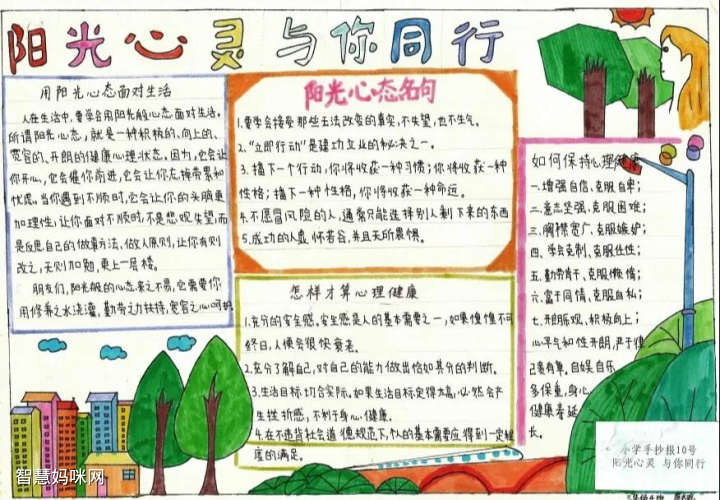 阳光心灵 与你同行
用阳光心态面对生活
人在生活中,要学会用阳光般心态面对生活。
所谓阳光心态,就是一种积极的、向上的、
宽容的、开朗的健康心理状态。因为,它会让
你开心,它会催你前进,它会让你忘掉劳累和
忧虑。当你遇到不顺时,它会让你的头脑更
加理性;让你面对不顺时,不是悲观失望,而
是反思自己的做事方法,做人原则,让你有则
改之,无则加勉,更上一层楼。
朋友们,阳光般的心态来之不易,它需要你
用修养之水浇灌,勤劳之力扶持,宽容之心呵护
阳光心态名句
1.要学会接受那些无法改变的事实,不失望,也不生气。
2.“立即行动”是建功立业的秘决之一。
3.播下一个行动,你将收获一种习惯;你将收获一种
性格;播下一种性格,你将收获一种命运。
4.不愿冒风险的人,通常只能选择别人剩下来的东西
5.成功的人虚怀若谷,并且无所畏惧。
怎样才算心理健康
1.充分的安全感。安全感是人的基本需要之一,如果惶惶不可
终日,人便会很快衰老。
2.充分了解自己,对自己的能力做出恰如其分的判断。
3.生活目标切合实际。如果生活目标定得太高,必然会产
生挫折感,不利于身心健康。
4.在不违背社会道德规范下,个人的基本需要应得到一定程
度的满足。
如何保持心理健康
一.增强自信、克服自卑;
二.意志坚强、克服困难;
三.胸襟宽广、克服嫉妒;
四、学会克制、克服任性;
五.勤劳肯干、克服懒惰;
六.富于同情、克服自私;
七.开朗乐观、积极向上;
心平气和性开朗,严于律
己要有尊。自娱自乐
多保重,身心
健康寿延
长。
小学手抄报10号
阳光心灵 与你同行
智慧妈咪网